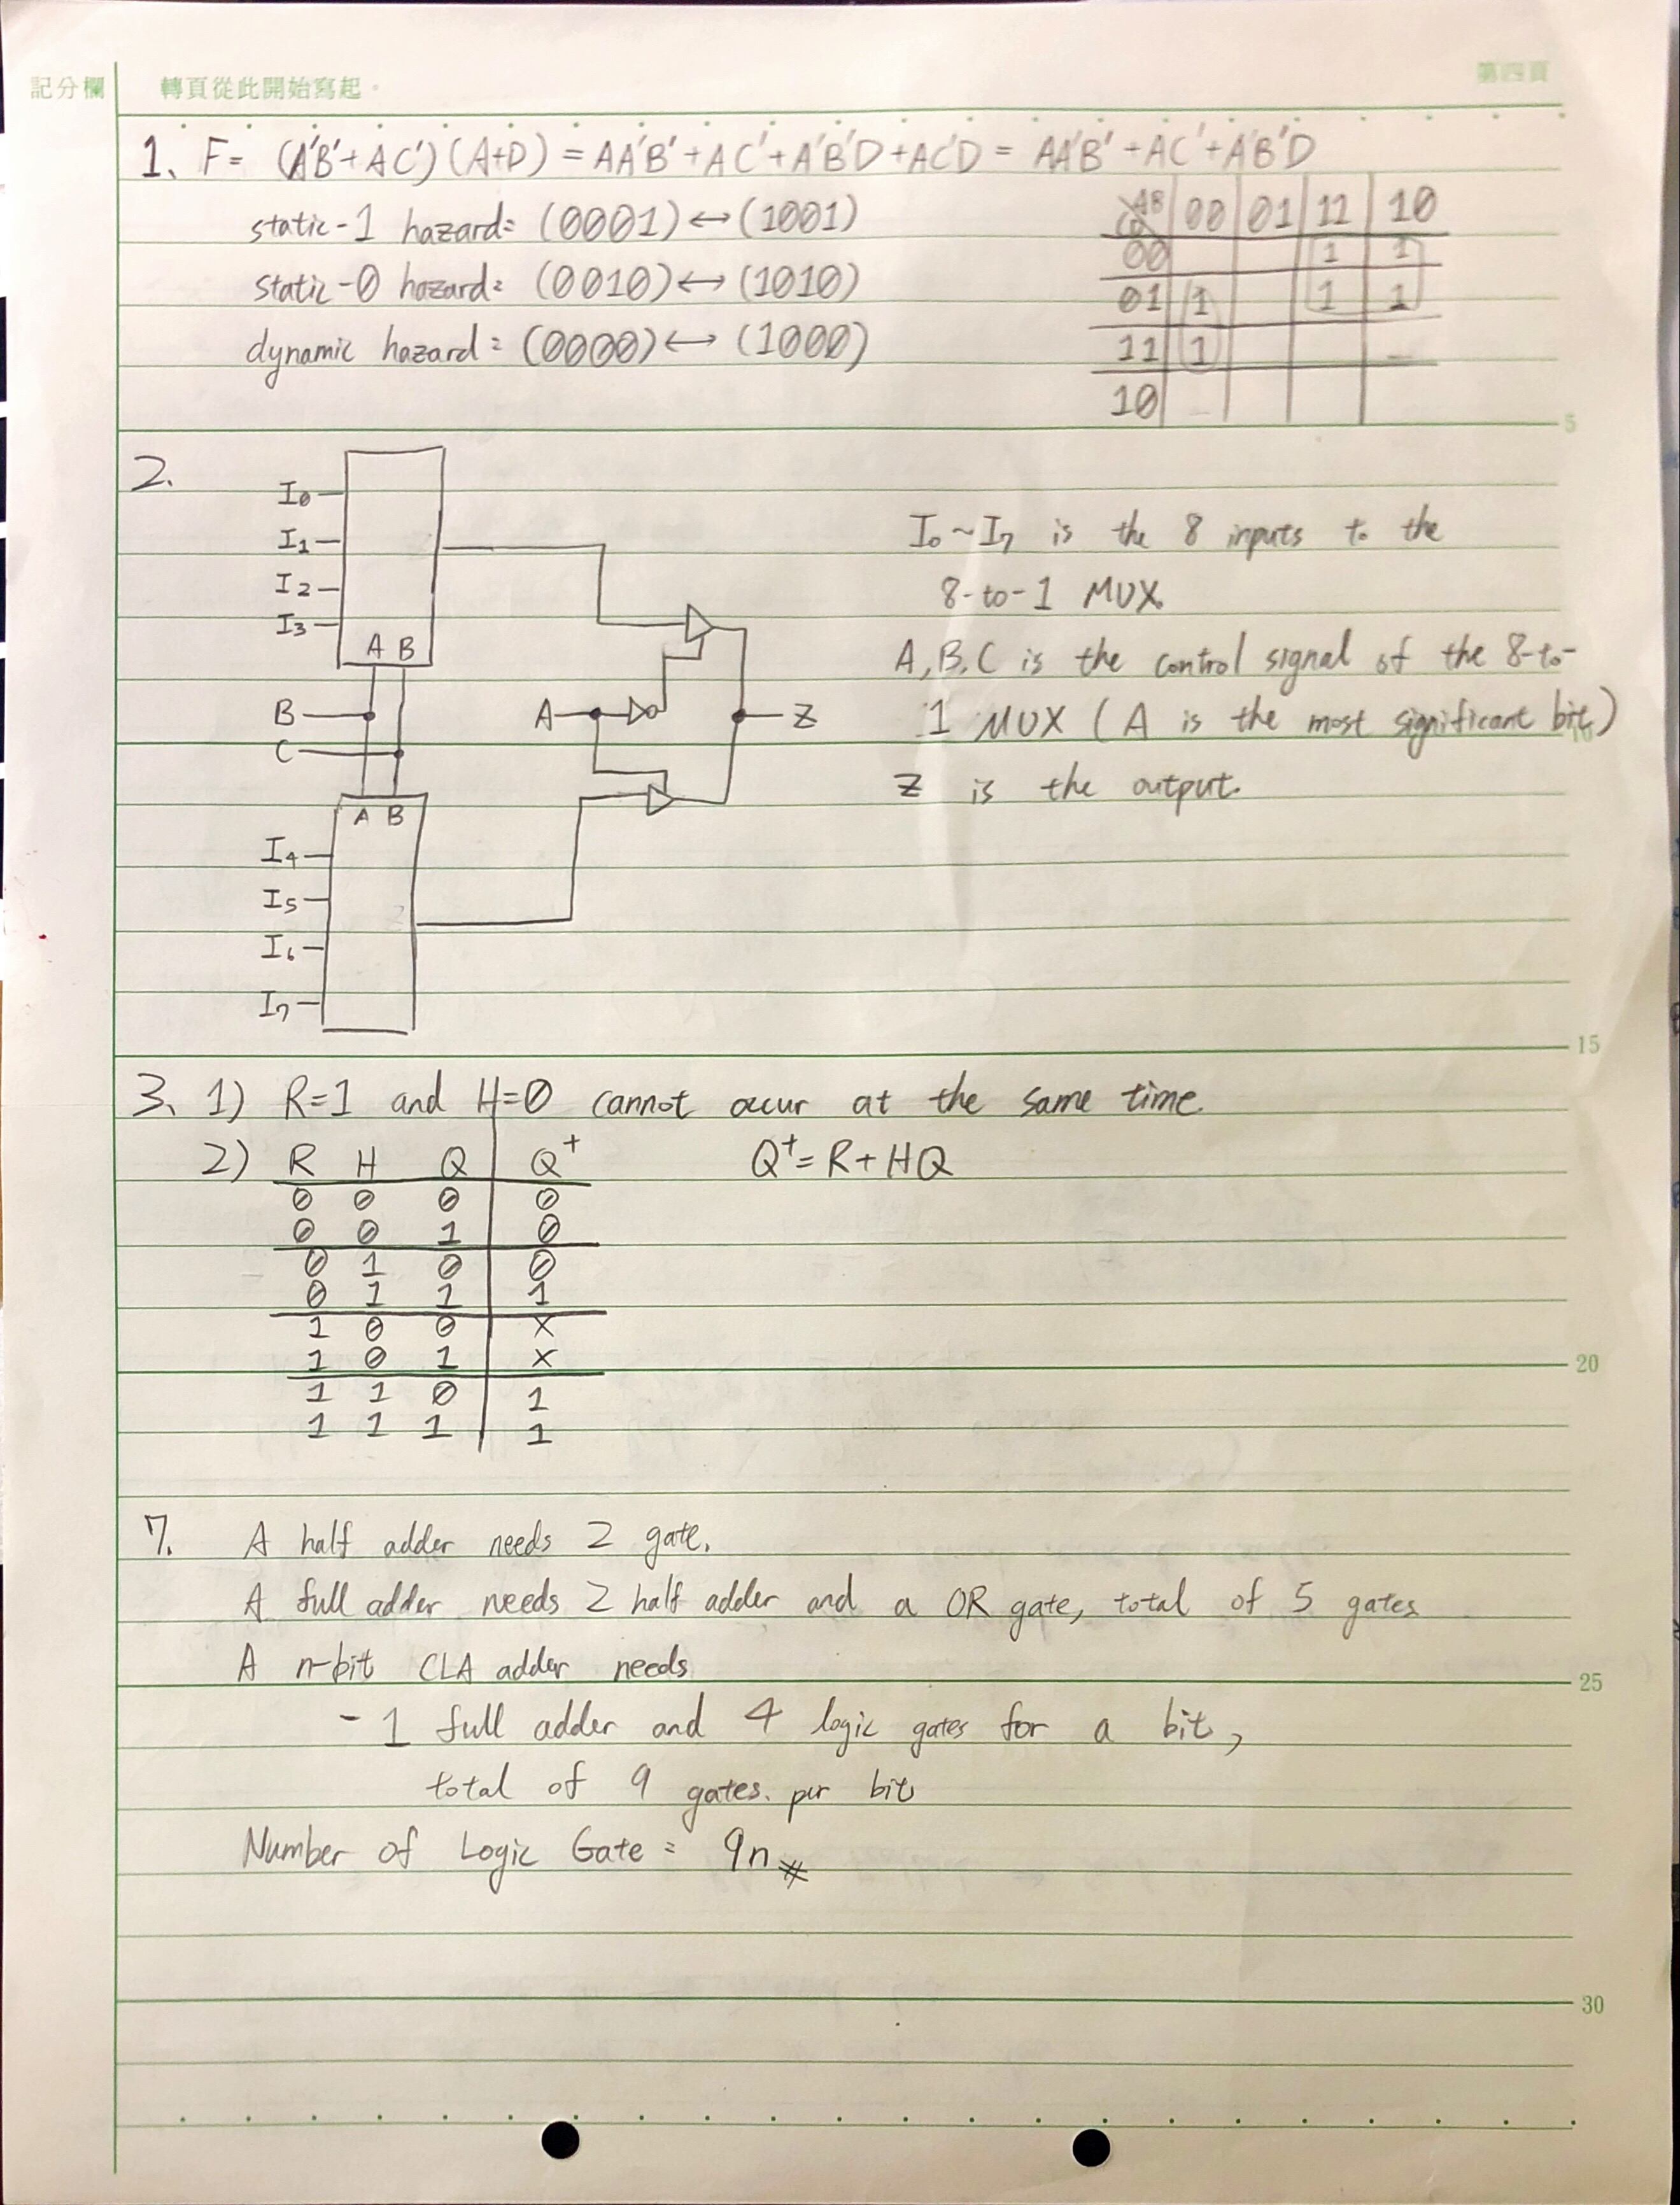 記分欄
轉頁從此開始寫起。
第四頁
1. F= (A'B'+AC')(A+D) = AA'B'+AC'+A'B'D+AC'D = AA'B'+AC'+A'B'D
static-1 hazard: (0001)↔(1001)
static-0 hazard: (0010)↔(1010)
dynamic hazard: (0000)↔(1000)
AB 00 01 11 10
CD
00 1 1
01 1 1 1
11 1
10
5
2.
I0
I1
I2
I3
A B
B
C
A
Z
A B
I4
I5
I6
I7
I0~I7 is the 8 inputs to the
8-to-1 MUX.
A,B,C is the control signal of the 8-to-
1 MUX (A is the most significant bit)
10
Z is the output.
15
3. 1) R=1 and H=0 cannot occur at the same time.
2) R H Q Q+ Q+=R+HQ
0 0 0 0
0 0 1 0
0 1 0 0
0 1 1 1
1 0 0 x
1 0 1 x
20
1 1 0 1
1 1 1 1
7. A half adder needs 2 gate.
A full adder needs 2 half adder and a OR gate, total of 5 gates
A n-bit CLA adder needs
25
- 1 full adder and 4 logic gates for a bit,
total of 9 gates. per bit
Number of Logic Gate = 9n #
30